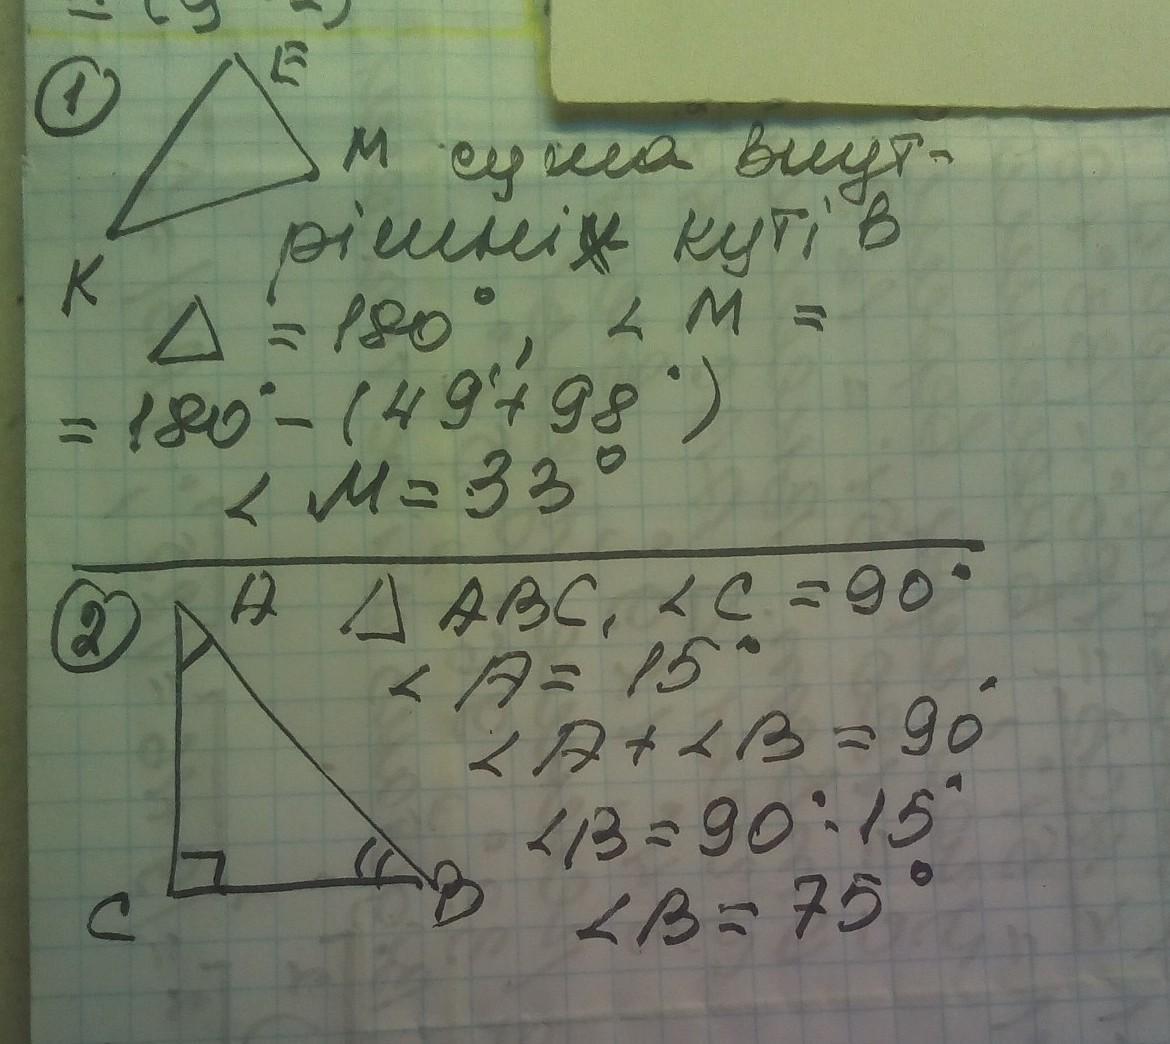 1
E
M сума внут-
рішніх кутів
K
△ = 180°, ∠ M =
= 180° - (49° + 98°)
∠ M = 33°
2 A △ ABC, ∠C = 90°
∠ A = 15°
∠ A + ∠ B = 90°
∠B = 90° - 15°
C B ∠B = 75°